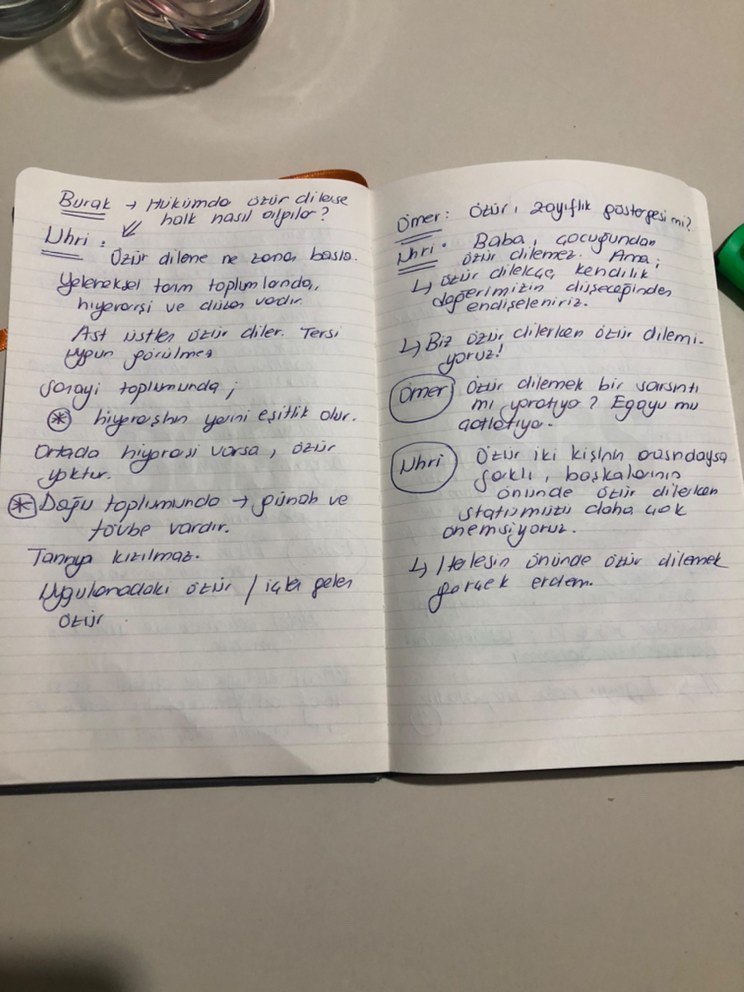 Burak → Hükümdar özür dilerse
halk nasıl algılar?
Uhri :
Özür dileme ne zaman başla.
Geleneksel tarım toplumlarında,
hiyerarşi ve düzen vardır.
Ast üstten özür diler. Tersi
uygun görülmez
Sanayi toplumunda ;
* hiyerarşinin yerini eşitlik alır.
Ortada hiyerarşi varsa, özür
yoktur.
* Doğu toplumunda → günah ve
tövbe vardır.
Tanrıya kızılmaz.
Uygulamadaki özür / içten gelen
özür
Ömer : Özür, zayıflık göstergesi mi?
Uhri : Baba, çocuğundan
özür dilemez. Ama ;
↳ özür diledikçe kendilik
değerimizin düşeceğinden
endişeleniriz.
↳ Biz özür dilerken özür dilemi-
yoruz!
Ömer Özür dilemek bir sarsıntı
mı yaratıyo? Egoyu mu
çatlatıyo.
Uhri Özür iki kişinin arasındaysa
farklı, başkalarının
önünde özür dilerken
statümüzü daha çok
önemsiyoruz.
↳ Herkesin önünde özür dilemek
gerçek erdem.